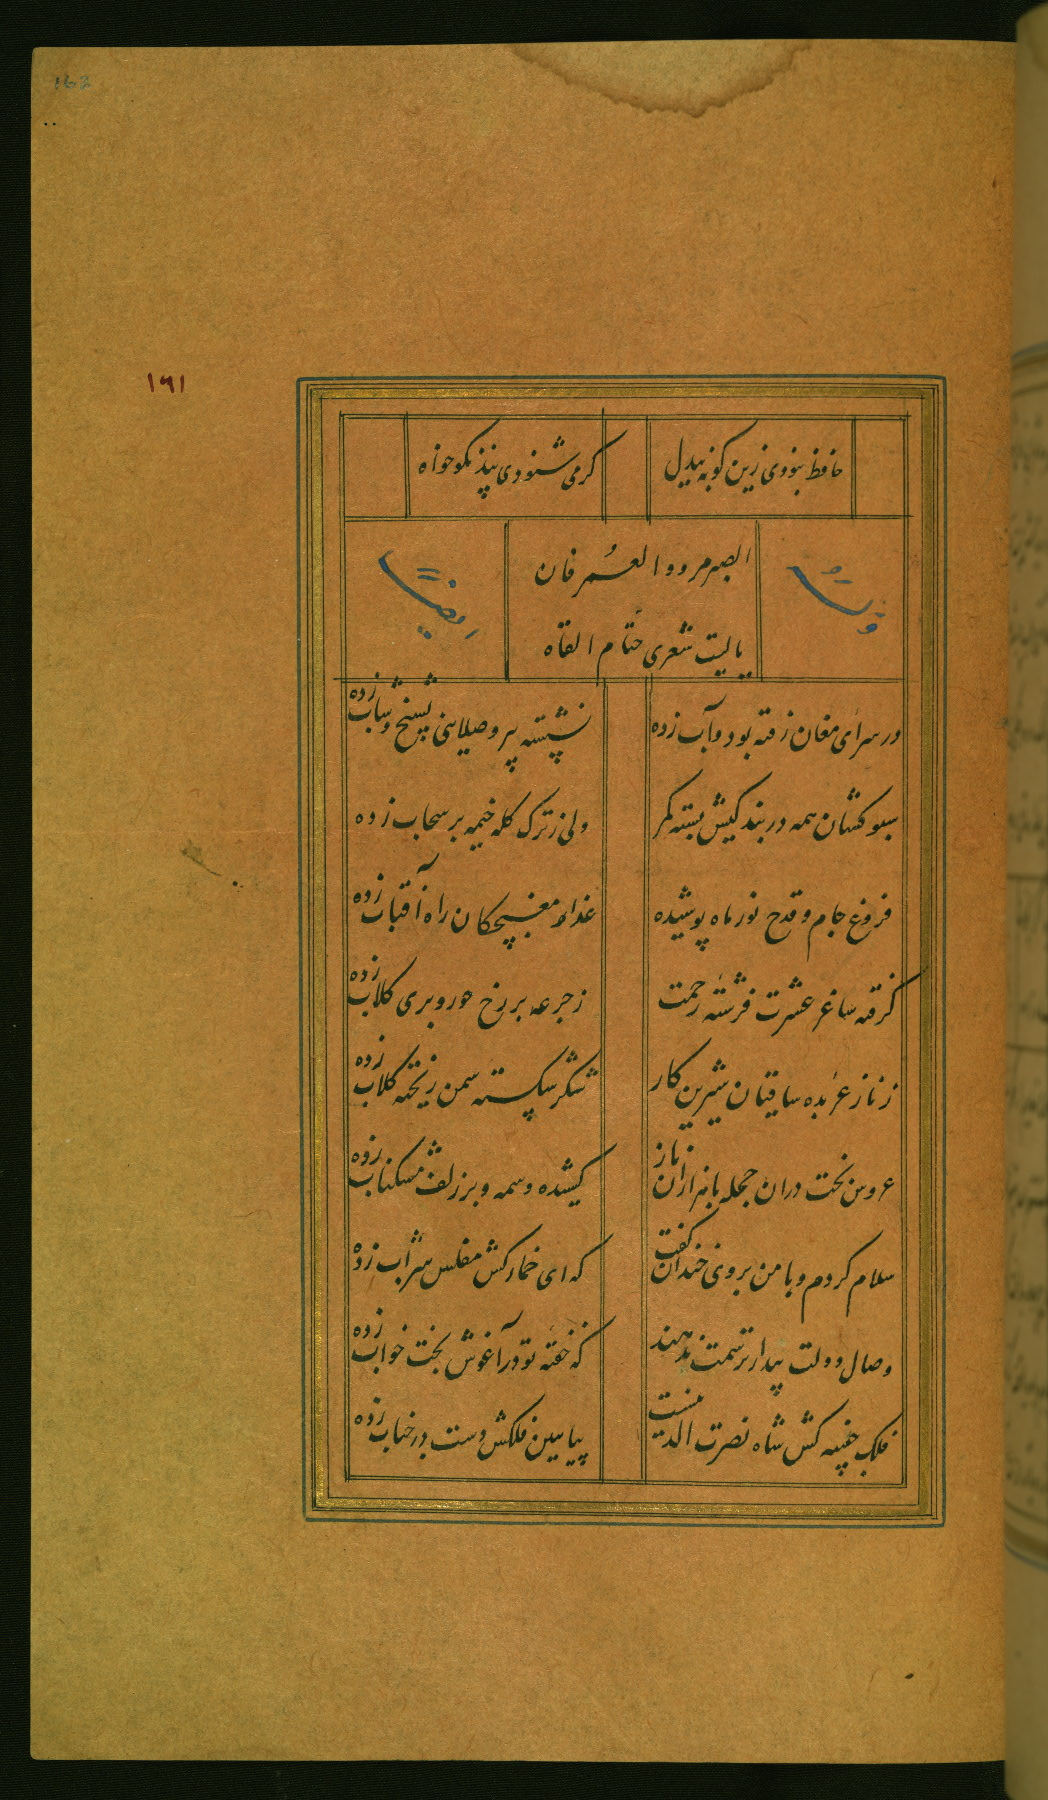 162
۱۶۱
حافظ نبودی زین گونه بیدل
کرمی شنودی پند نکو خواه
الصبر مر و العمر فان
یا لیت شعری حتام القاه
ایضا
در سرای مغان رفته بود و آب زده
نشسته پیر و صلایی بشیخ و شاب زده
سبو کشان همه در بندکیش بسته کمر
ولی ز ترک کله خیمه بر سحاب زده
فروغ جام و قدح نور ماه پوشیده
عذار مغبچکان راه آفتاب زده
کرفته ساغر عشرت فرشته رحمت
ز جرعه بر رخ حور و پری کلاب زده
ز ناز عربده ساقیان شیرین کار
شکر شکسته سمن ریخته کلاب زده
عروس بخت دران حجله با هزاران ناز
کشیده وسمه و بر زلف مشکناب زده
سلام کردم و با من بروی خندان کفت
که ای خمارکش مفلس شراب زده
وصال دولت بیدار ترسمت ندهند
که خفته تو در آغوش بخت خواب زده
فلک جنیبه کش شاه نصرت الدینست
بیا ببین ملکش دست در خباب زده